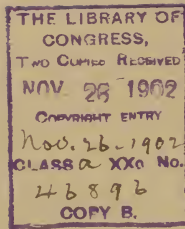 THE LIBRARY OF
CONGRESS,
TWO COPIES RECEIVED
NOV. 26 1902
COPYRIGHT ENTRY
Nov. 26-1902
CLASS a XXc. No.
46896
COPY B.